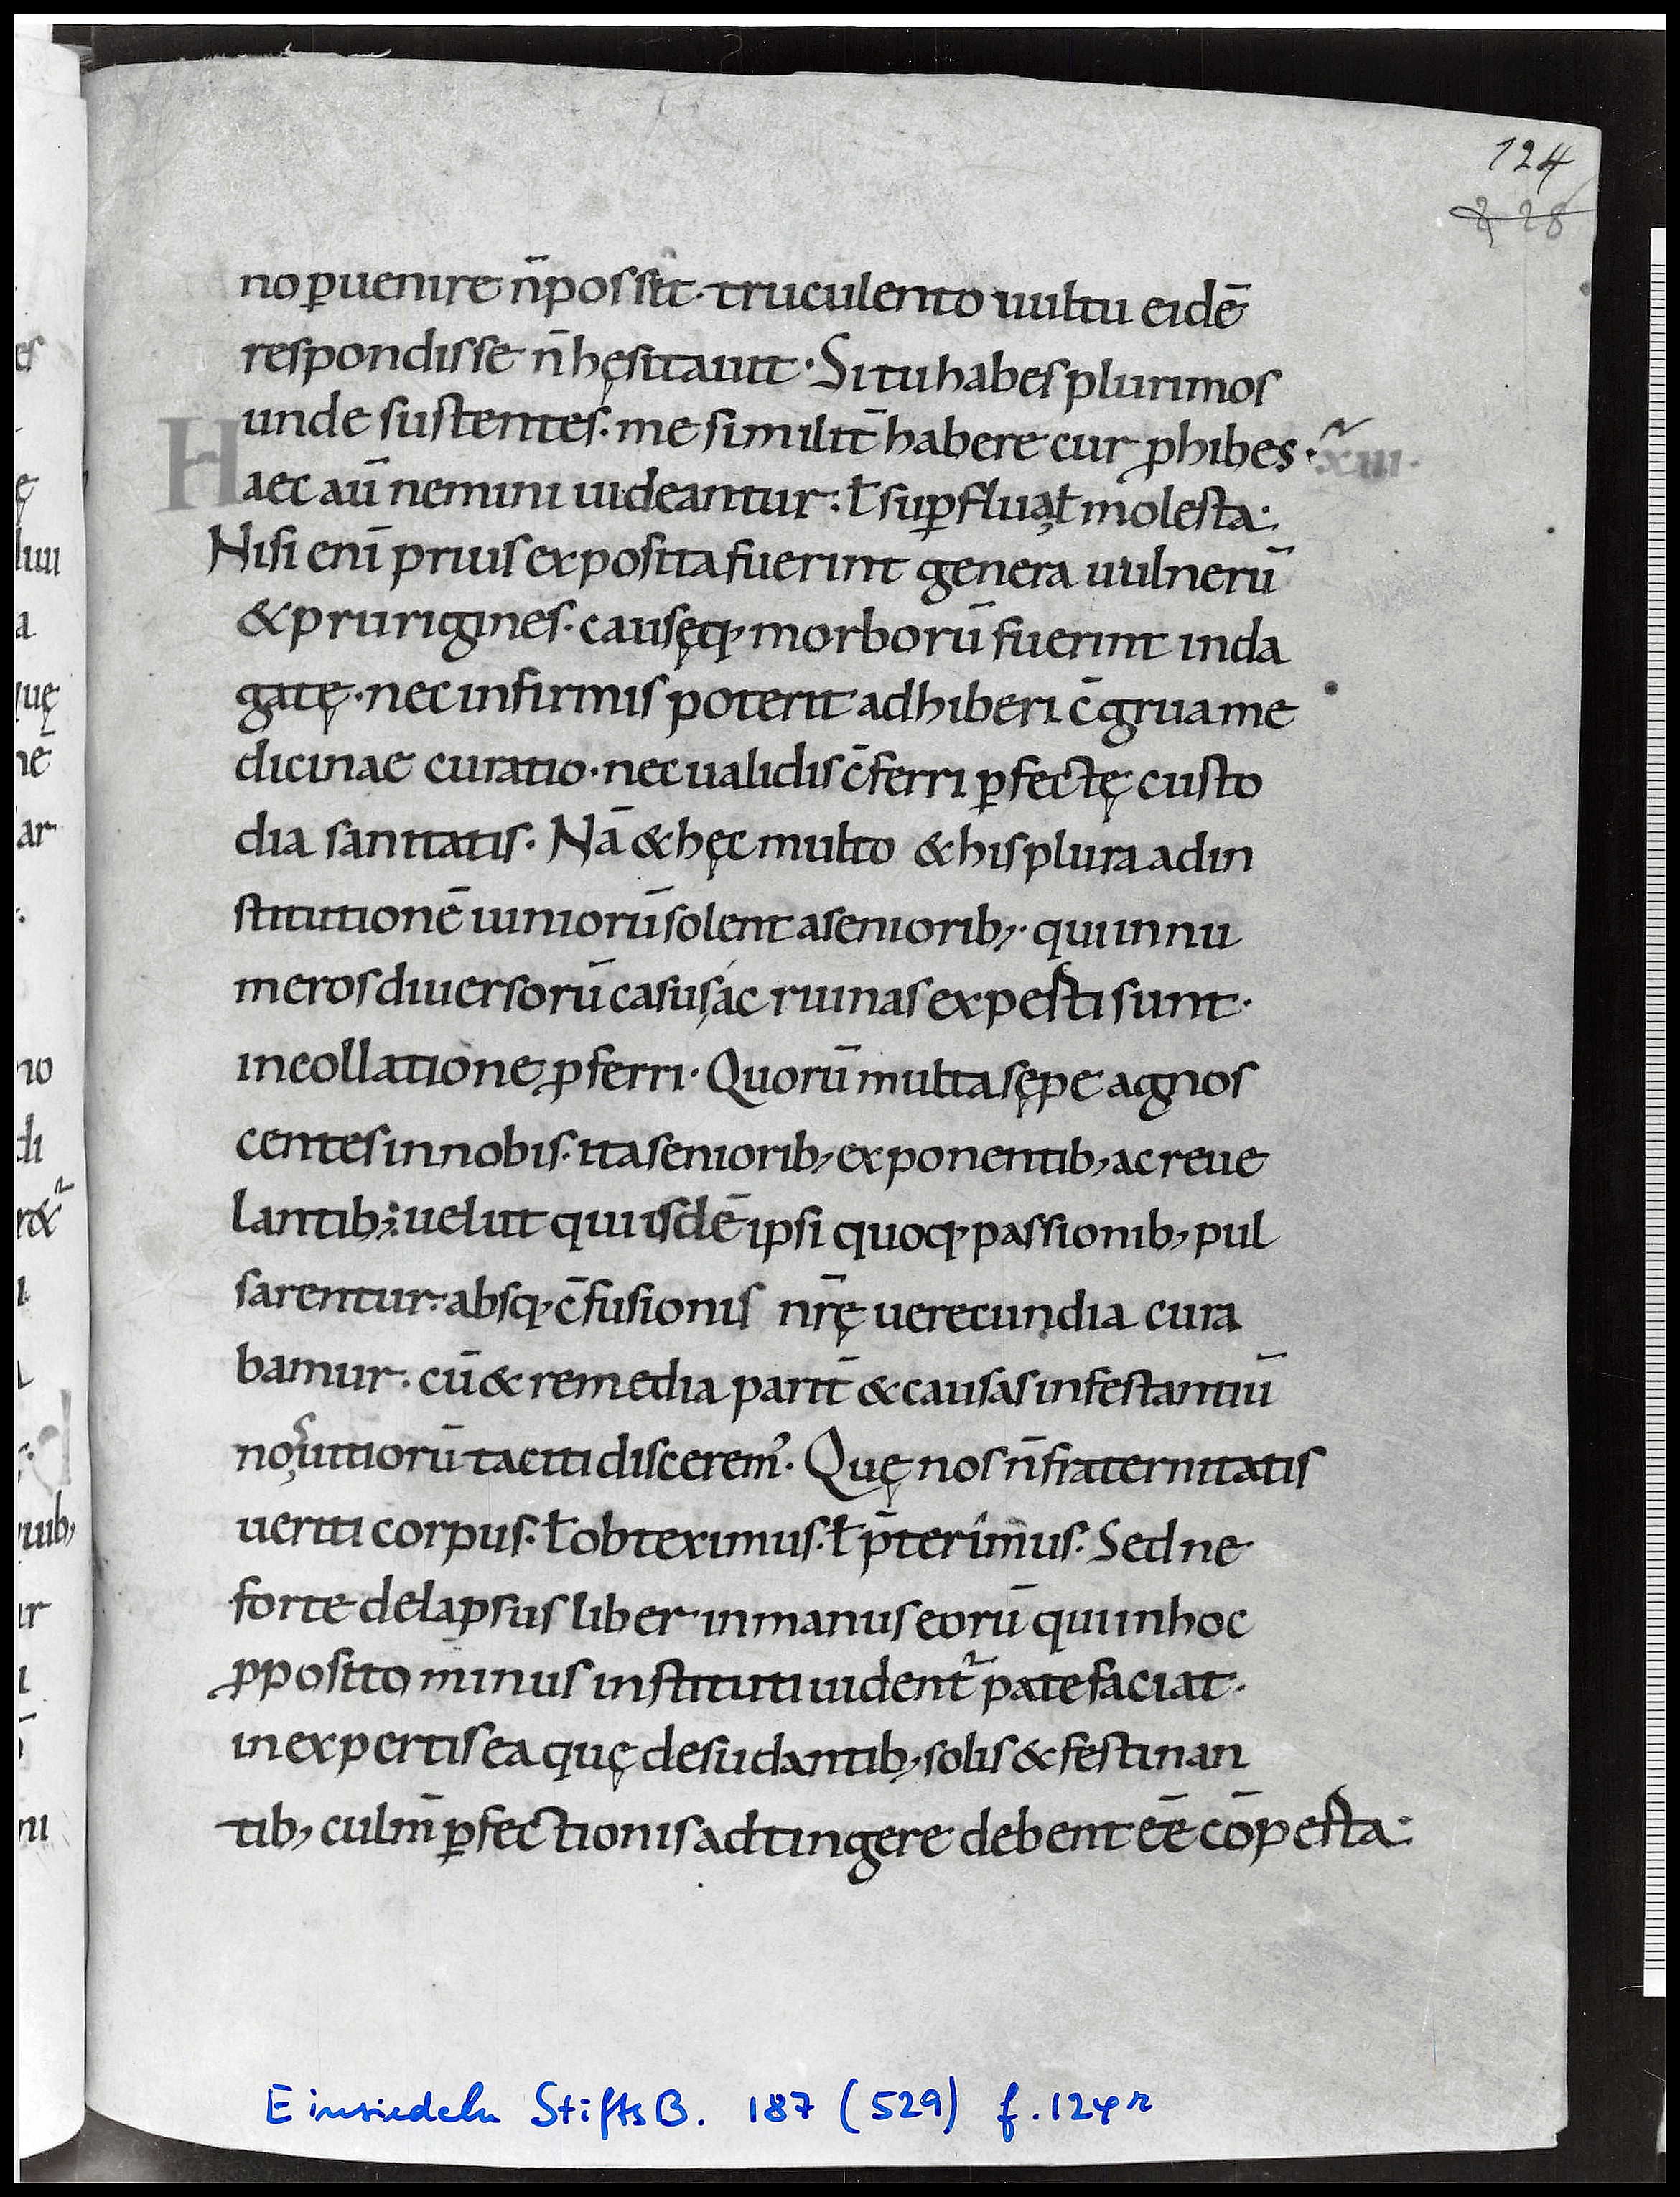 124
228
no ꝑuenire n̄ possit · truculento uultu eidē
respondisse n̄ hęsitauit · Si tu habes plurimos
unde sustentes · me similit̄ habere cur ꝓhibes ·
xiii ·
Haec aū nemini uideantur : ł suꝑflua ł molesta :
Nisi enī prius exposita fuerint genera uulnerū
& prurigines · causęq; morborū fuerint inda
gatę · nec infirmis poterit adhiberi c̄grua me
dicinae curatio · nec ualidis c̄ferri ꝑfectę custo
dia sanitatis · Nā & hęc multo & his plura ad in
stitutionē iuniorū solent a seniorib; · qui innu
meros diuersorū casus ac ruinas expesti sunt ·
in collatione ꝓferri · Quorū multa sępe agnos
centes in nobis · ita seniorib; exponentib; ac reue
lantib; : uelut qui isdē ipsi quoq; passionib; pul
sarentur · absq; c̄fusionis nr̄ę uerecundia cura
bamur · cū & remedia parit̄ & causas infestantiū
nos uitiorū taciti discerem᾽ · Quę nos n̄ fraternitatis
ueriti corpus · ł obteximus · ł p̄terimus · Sed ne
forte delapsus liber in manus eorū qui in hoc
ꝓposito minus instituti uident᷑ patefaciat ·
inexpertis ea quę desudantib; solis & festinan
tib; culm̄ ꝑfectionis adtingere debent ēe cōpesta :
Einsiedeln StiftsB. 187 (529) f. 124r